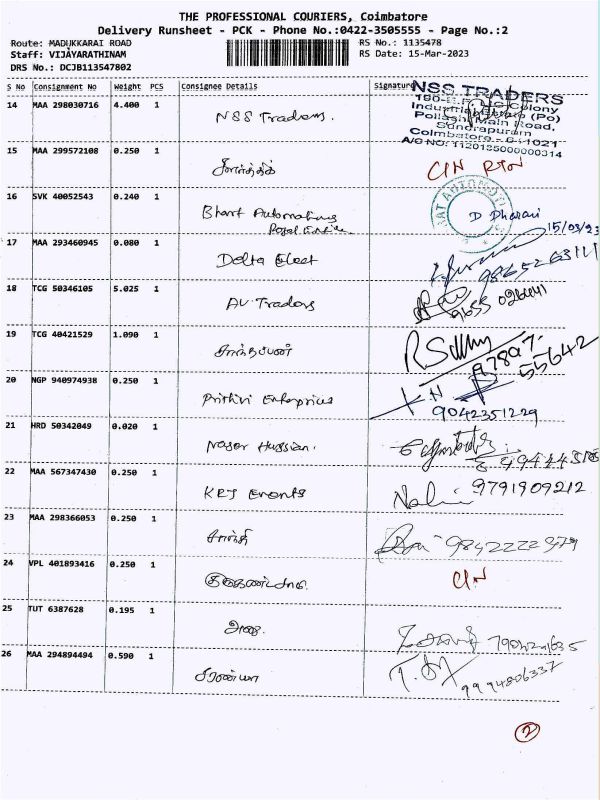 THE PROFESSIONAL COURIERS, Coimbatore
Delivery Runsheet - PCK - Phone No.:0422-3505555 - Page No.:2
Route: MADUKKARAI ROAD
Staff: VIJAYARATHINAM
DRS No.: DCJB113547802
RS No.: 1135478
RS Date: 15-Mar-2023
S No Consignment No Weight PCS Consignee Details Signature
14 MAA 298030716 4.400 1 NSS Traders.
NSS TRADERS
Colony
Industrial (Po)
Pollachi Main Road,
Sundrapuram
Coimbatore - 641021
A/C NO: 1120185000000314
15 MAA 299572108 0.250 1 கார்த்திக் C/N RTN
16 SVK 40052543 0.240 1 Bharat Automotives
Royal Enfield
D Dharani
15/03/23
17 MAA 293460945 0.080 1 Delta Elect
9865263111
18 TCG 50346105 5.025 1 AV Traders
9655 026441
19 TCG 40421529 1.090 1
97897-
55642
20 NGP 940974938 0.250 1 Prithivi Enterprices
9042351229
21 HRD 50342049 0.020 1 Naser Hussian.
22 MAA 567347430 0.250 1 KRJ Events
9791909212
23 MAA 298366053 0.250 1 சாந்தி
24 VPL 401893416 0.250 1 C/N
25 TUT 6387628 0.195 1
26 MAA 294894494 0.590 1 சரண்யா
9994806337
2